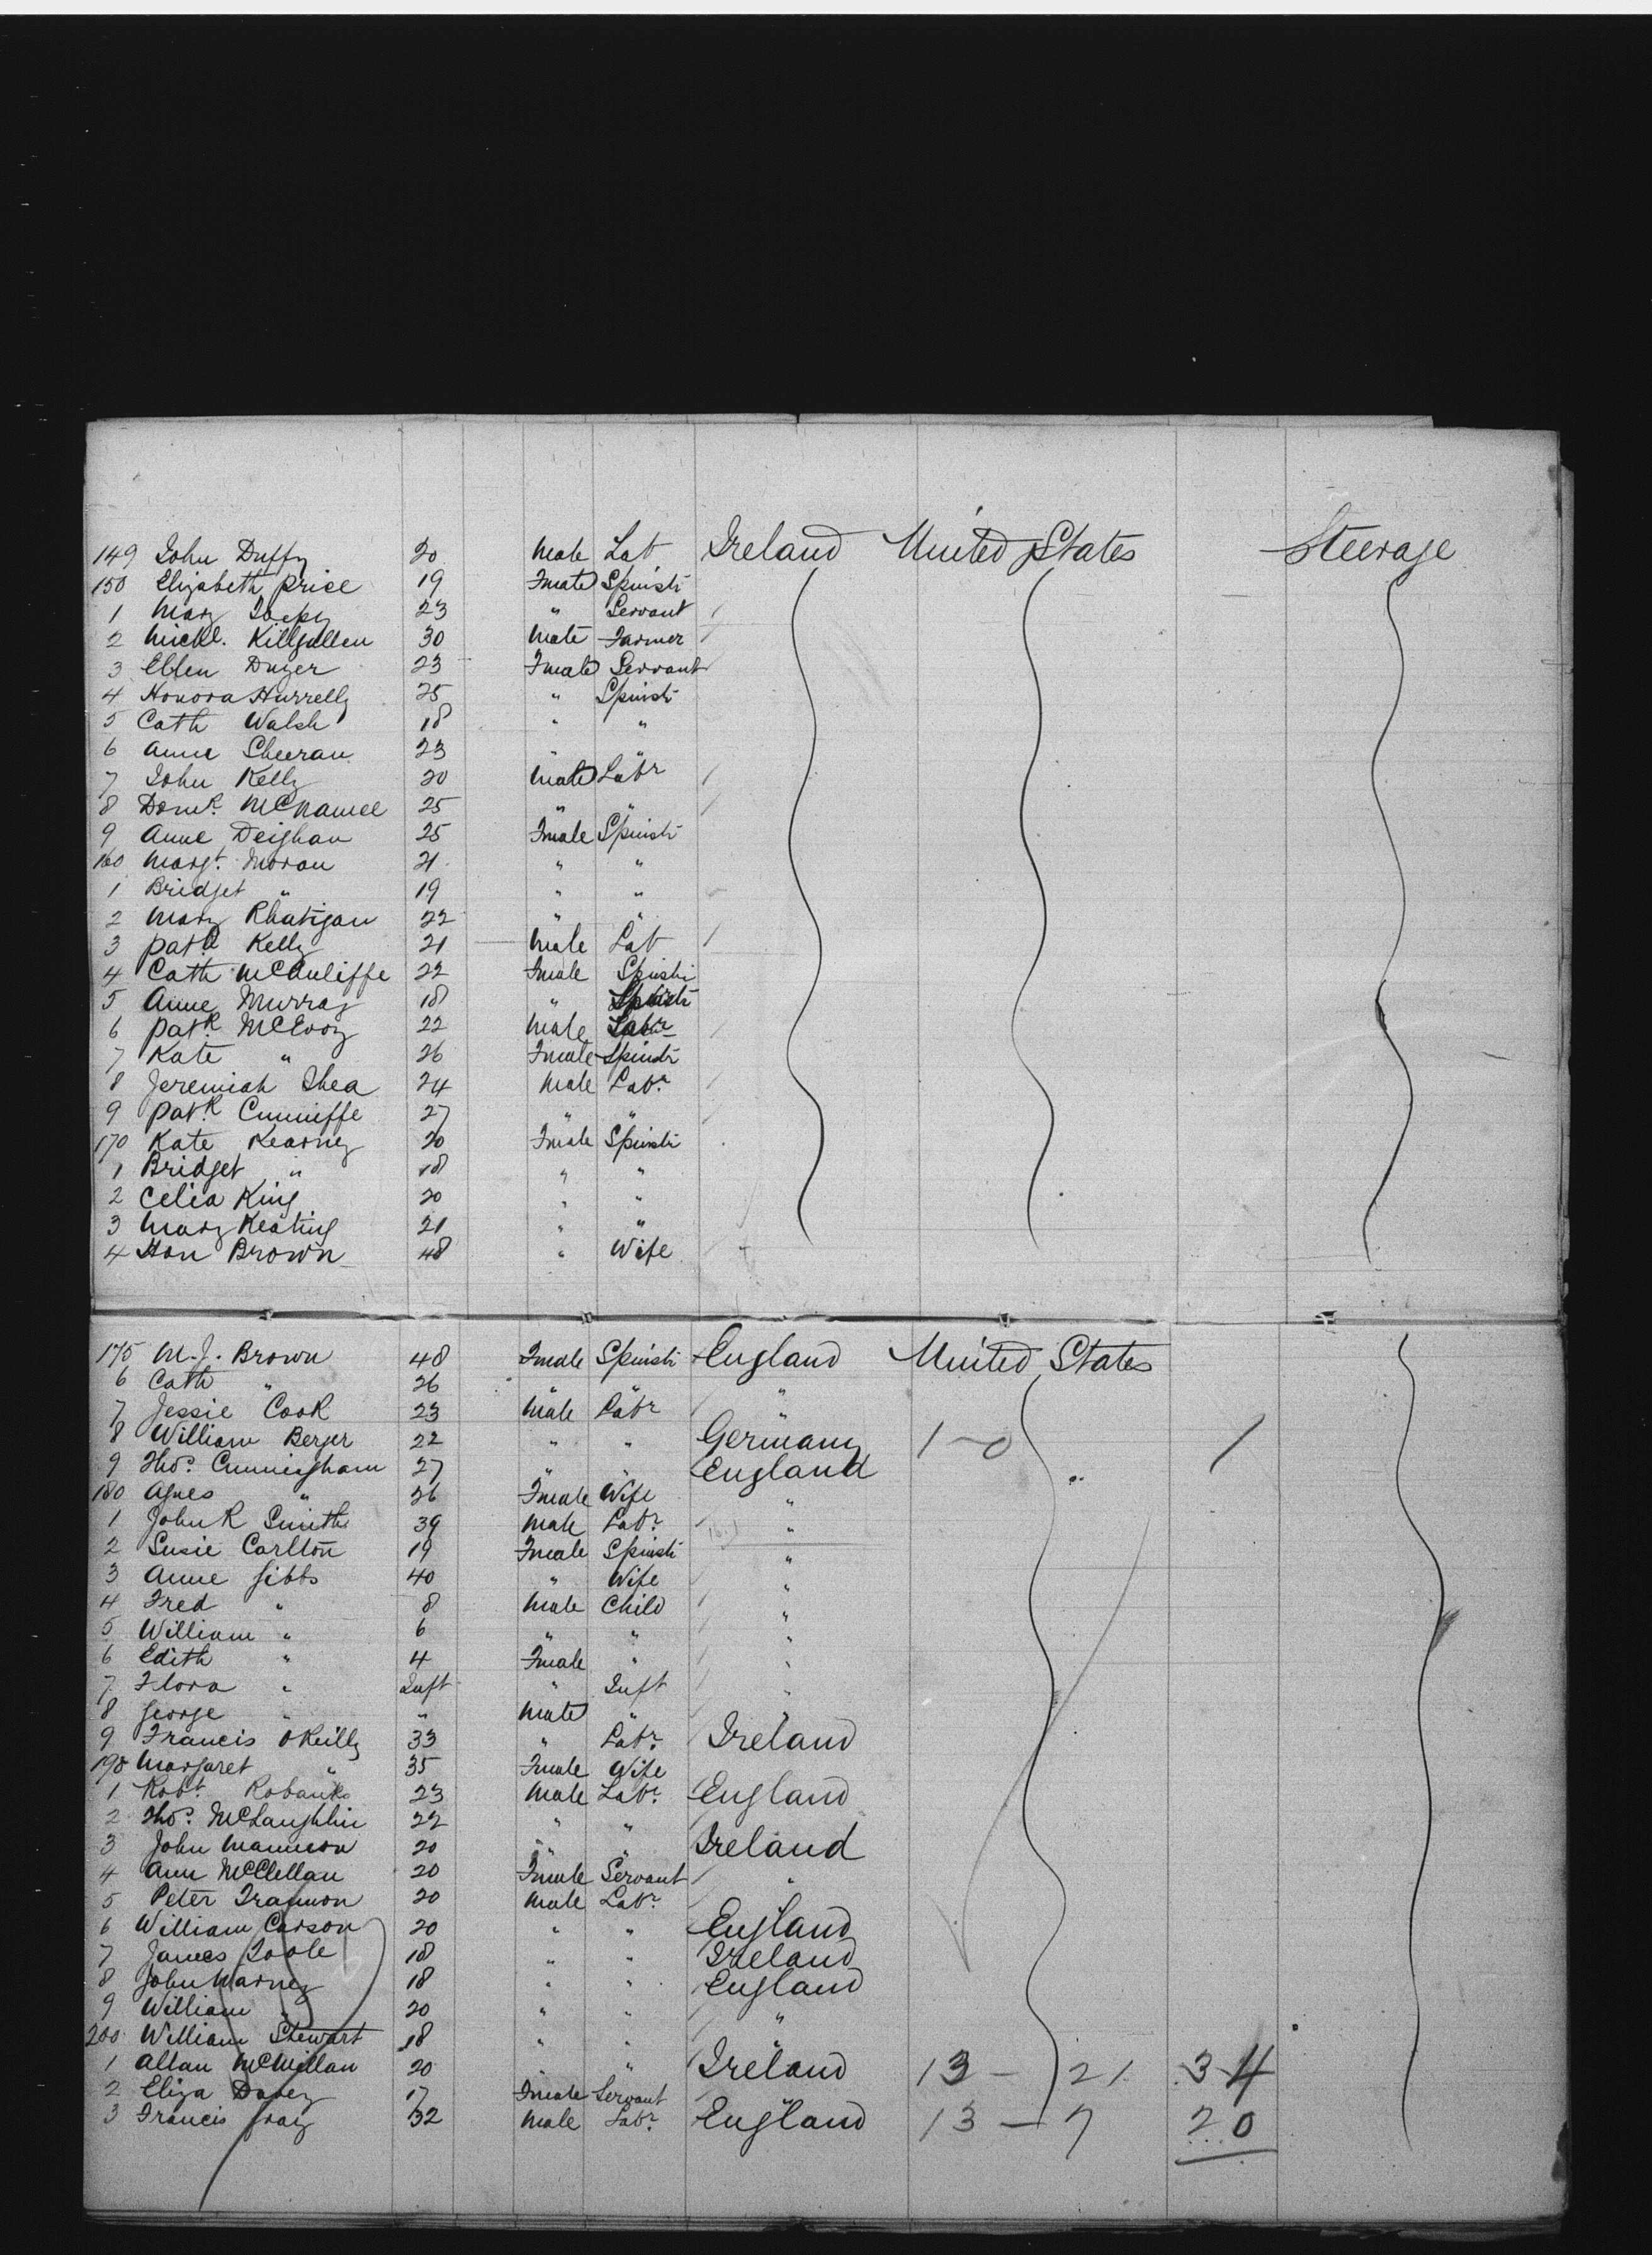 149 John Duffy 20 Male Lab Ireland United States Steerage
150 Elizabeth Price 19 Fmale Spinstr
1 Mary 23 " Servant
2 Michl. Killgallen 30 Male Farmer
3 Ellen Dwyer 23 Fmale Servant
4 Honora Hurrelly 25 " Spinstr
5 Cath Walsh 18 " "
6 Anne Sheeran 23
7 John Kelly 20 Male Labr
8 Domk. McNamee 25 " "
9 Anne Deighan 25 Fmale Spinstr
160 Margt. Moran 21 " "
1 Bridget " 19 " "
2 Mary Rhatigan 22 " "
3 Patk Kelly 21 Male Lab
4 Cath McAuliffe 22 Fmale Spinstr
5 Anne Murray 18 " Spinstr
6 Patk McEvoy 22 Male Labr
7 Kate " 26 Fmale Spinstr
8 Jeremiah Shea 24 Male Labr.
9 Patk Cunniffe 27 " "
170 Kate Kearney 20 Fmale Spinstr
1 Bridget " 18 " "
2 Celia King 20 " "
3 Mary Keating 21 " "
4 Hon Brown 48 " Wife
175 M. J. Brown 48 Fmale Spinstr England United States
6 Cath " 26 "
7 Jessie Cook 23 Male Labr "
8 William Berger 22 " " Germany 1-0 1
9 Thos. Cunningham 27 " " England "
180 Agnes " 26 Fmale Wife "
1 John R Smith 39 Male Labr. "
2 Susie Carlton 19 Fmale Spinstr "
3 Anne Gibbs 40 " Wife "
4 Fred " 8 Male Child "
5 William " 6 " " "
6 Edith " 4 Fmale " "
7 Flora " Inft " Inft "
8 George " " Male "
9 Francis OReilly 33 " Labr. Ireland
190 Margaret " 35 Fmale Wife
1 Robt. Robanks 23 Male Labr. England
2 Thos. McLaughlin 22 " "
3 John 20 " " Ireland
4 Ann McClellan 20 Fmale Servant "
5 Peter 20 Male Labr.
6 William Carson 20 " " England
7 James Toole 18 " " Ireland
8 John 18 " " England
9 William " 20 " " "
200 William Stewart 18 " " "
1 Allan McMillan 20 " " Ireland 13 - 21 34
2 Eliza 17 Fmale Servant
3 Francis Gray 32 Male Labr. England 13 - 7 20